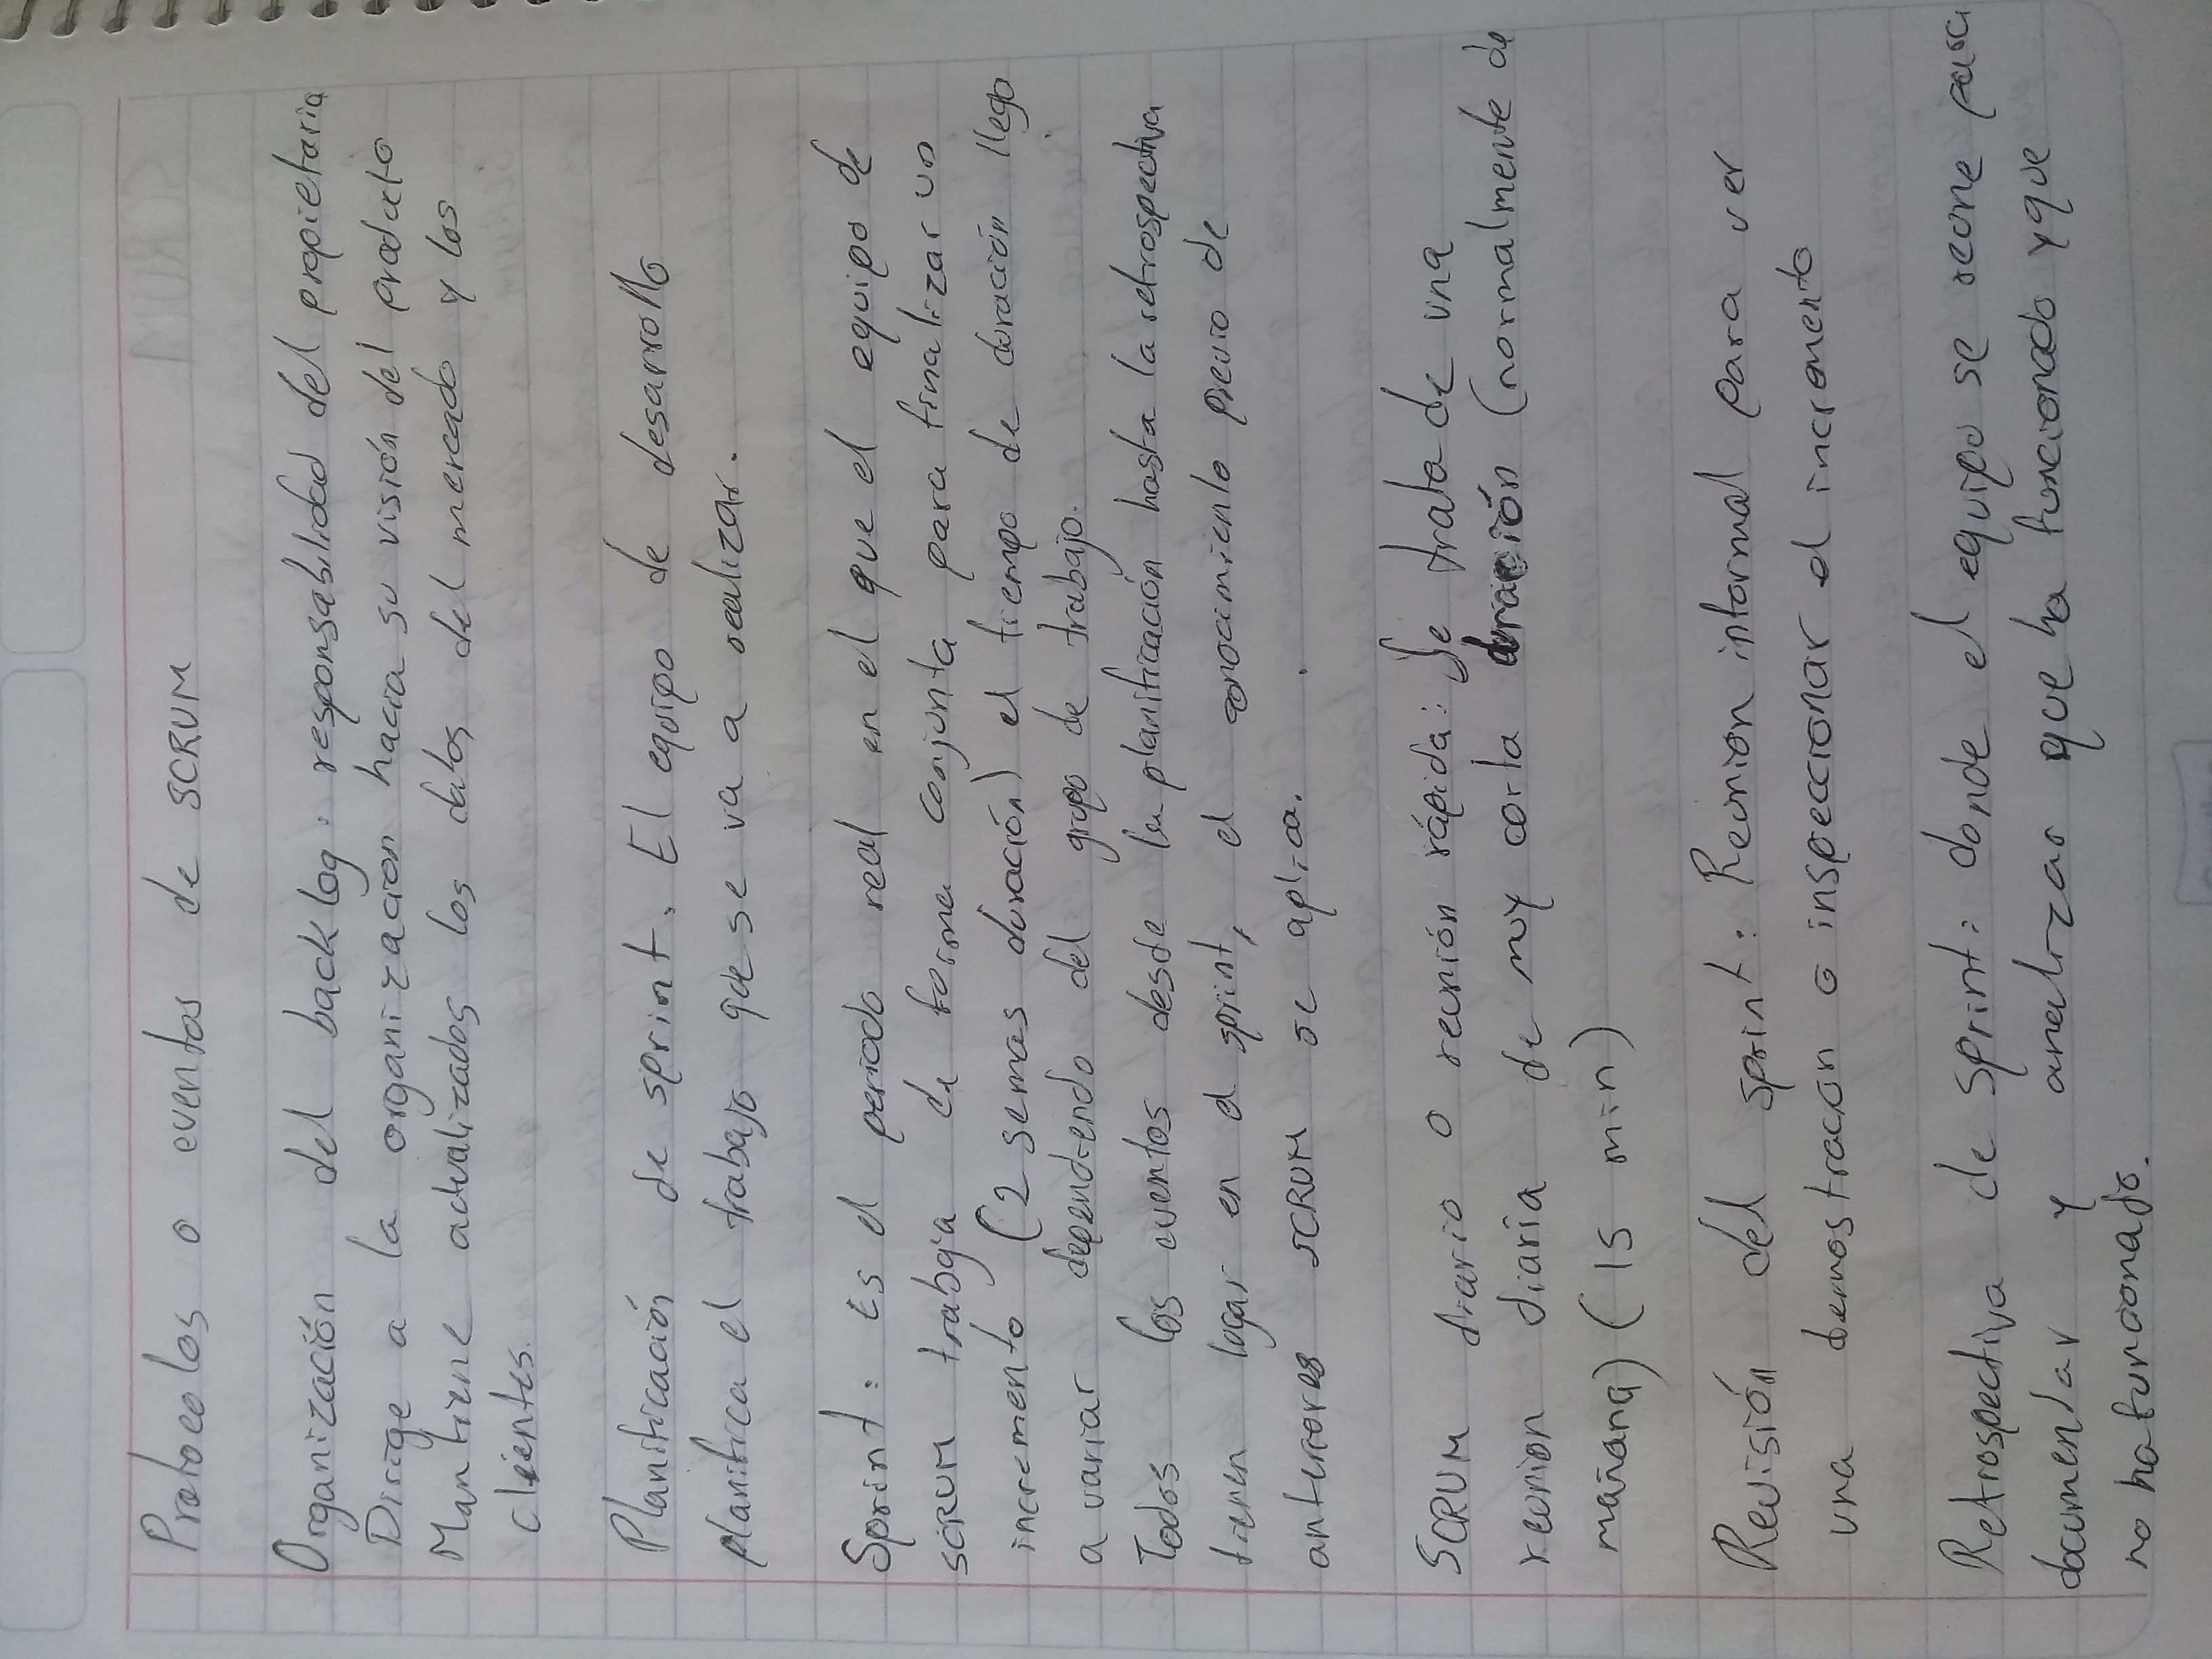 Protocolos o eventos de SCRUM
Organización del backlog. responsabilidad del propietaria
Dirige a la organización hacia su visión del producto
Mantiene actualizados los datos del mercado y los
clientes.
Planificación de sprint. El equipo de desarrollo
planifica el trabajo que se va a realizar.
Sprint: Es el periodo real en el que el equipo de
SCRUM trabaja de forma conjunta para finalizar un
incremento (2 semas duración) el tiempo de duración llego
a variar dependiendo del grupo de trabajo.
Todos los eventos desde la planificación hasta la retrospectiva
tienen lugar en el sprint, el conocimiento previo de
anteriores SCRUM se aplica.
SCRUM diario o reunión rápida: Se trata de una
reunion diaria de muy corta duración (normalmente de
mañana) (15 min)
Revisión del sprint: Reunion informal para ver
una demostración o inspeccionar el incremento
Retrospectiva de sprint: donde el equipo se reone para
documentar y analizar que ha funcionado y que
no ha funcionado.